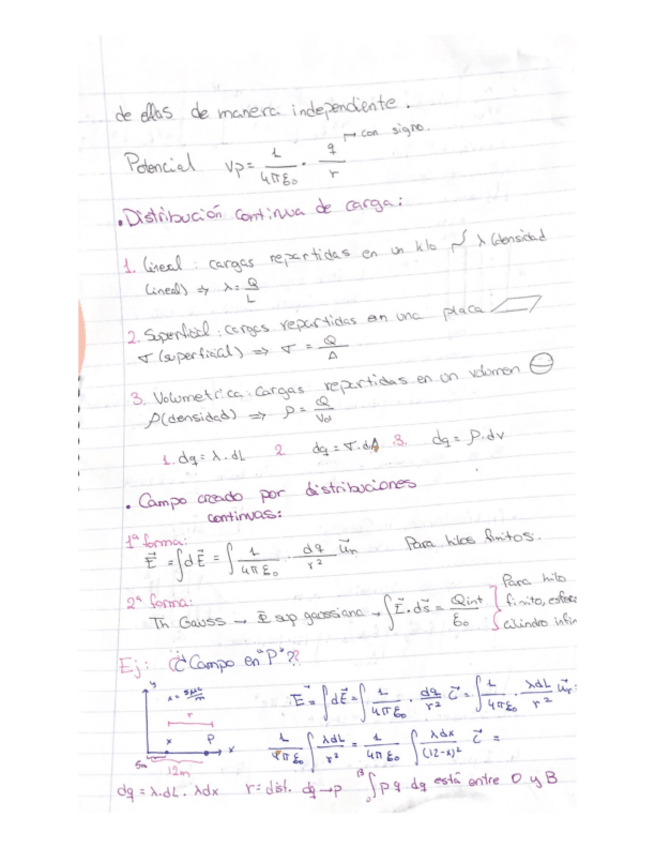 de ellas de manera independiente.
Potencial Vp = 1/4πε₀ · q/r → con signo.
• Distribución continua de carga:
1. Lineal : cargas repartidas en un hilo ~ λ (densidad
lineal) ⇒ λ = Q/L
2. Superficial : cargas repartidas en una placa
σ (superficial) ⇒ σ = Q/A
3. Volumetrica : Cargas repartidas en un volumen
ρ (densidad) ⇒ ρ = Q/Vol
1. dq = λ · dL 2 dq = σ · dA 3. dq = ρ · dv
• Campo creado por distribuciones
continuas:
1ª forma:
E⃗ = ∫dE⃗ = ∫ 1/4πε₀ · dq/r² u⃗r Para hilos finitos.
2ª forma:
Th Gauss → Φ sup gaussiana → ∫E⃗ · ds⃗ = Qint/ε₀
Para hilo
finito, esfera
cilindro infin
Ej: ¿Campo en "P"?
y λ = 5μC/m
E⃗ = ∫dE⃗ = ∫ 1/4πε₀ · dq/r² r⃗ = ∫ 1/4πε₀ · λdL/r² u⃗r =
r
x P x
1/4πε₀ ∫ λdL/r² = 1/4πε₀ ∫ λdx/(12-x)² r⃗ =
5m
12m
dq = λ · dL = λdx r = dist. dq → p ∫₀ᴮ pq dq está entre 0 y B